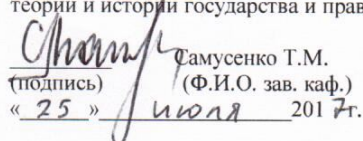 теории и истории государства и прав
Самусенко Т.М.
(подпись) (Ф.И.О. зав. каф.)
« 25 » июля 2017г.